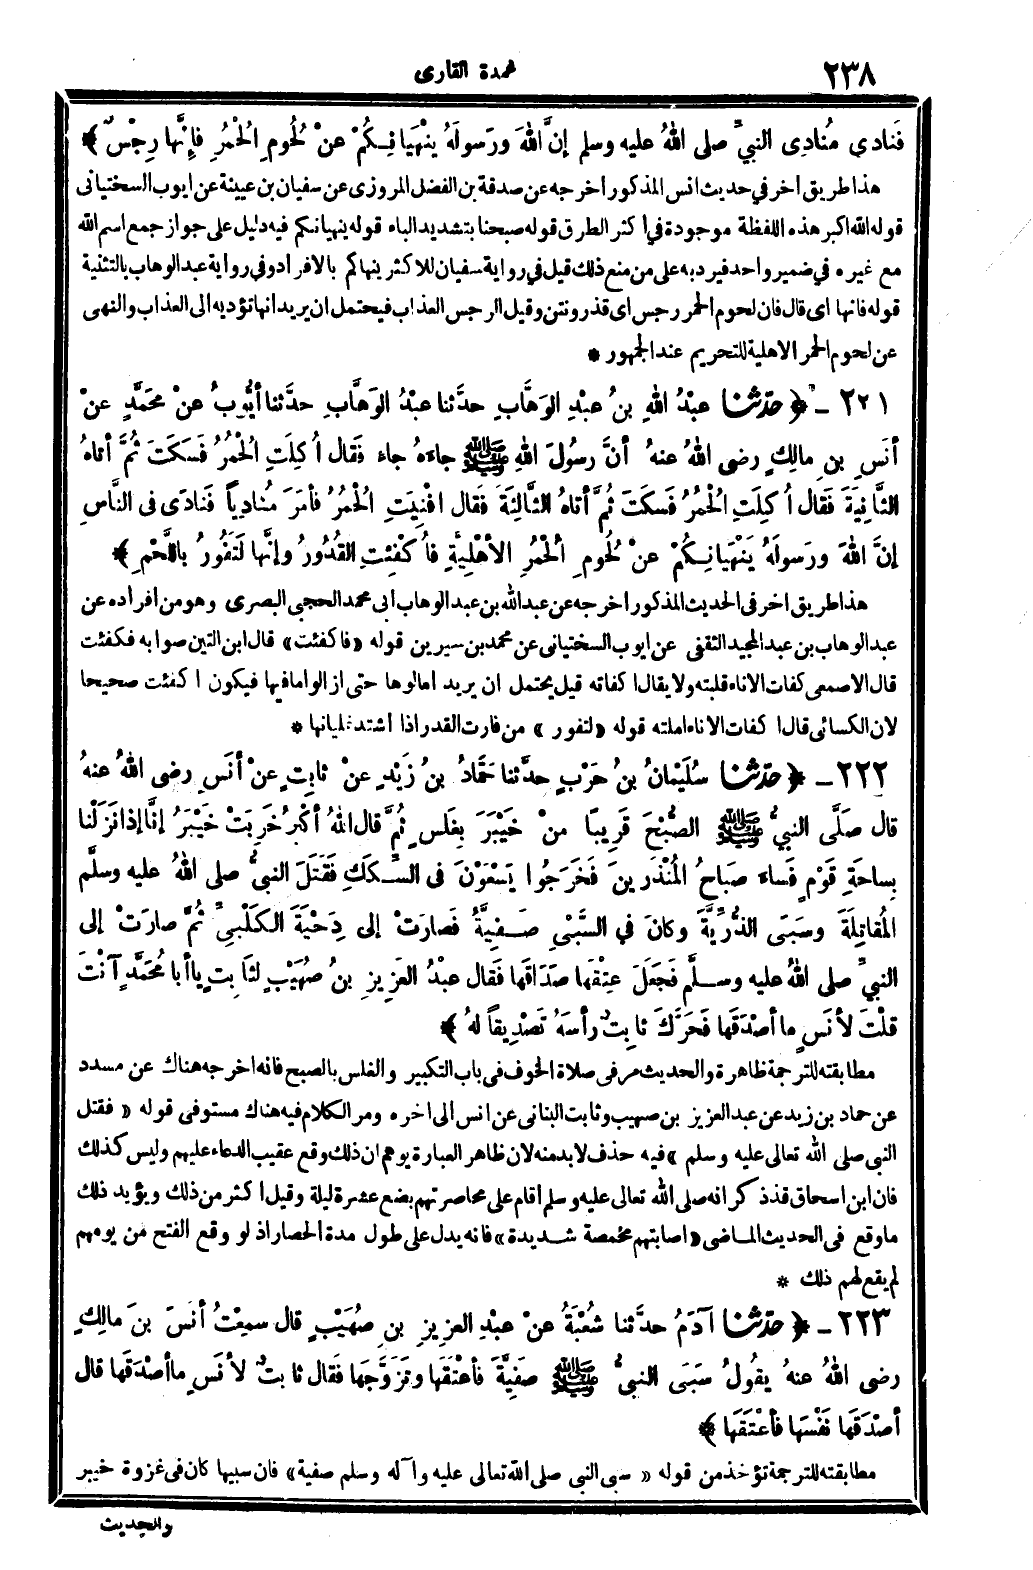 ٢٣٨
عمدة القارى
فَنَادي مُنادِى النبيِّ صلى اللهُ عليه وسلم إنَّ اللهَ ورَسولَهُ ينْهَيَانِكُمْ عنْ لُحُومِ الحُمُرِ فإِنَّها رِجْسٌ ﴾
هذا طريق اخر في حديث انس المذكور اخرجه عن صدقة بن الفضل المروزى عن سفيان بن عيينة عن ايوب السختيانى
قوله الله اكبر هذه اللفظة موجودة في اكثر الطرق قوله صبحنا بتشديد الباء قوله ينهيانكم فيه دليل على جواز جمع اسم الله
مع غيره في ضمير واحد فيرد به على من منع ذلك قيل في رواية سفيان للاكثر ينهاكم بالافراد وفي رواية عبد الوهاب بالتثنية
قوله فانها اى قال فان لحوم الحمر رجس اى قذر ونتن وقيل الرجس العذاب فيحتمل ان يريد انها تؤديه الى العذاب والنهى
عن لحوم الحمر الاهلية للتحريم عند الجمهور *
٢٢١ - ﴿ حدّثنا عبْدُ اللهِ بنُ عبْدِ الوَهَّابِ حدَّثنا عبْدُ الوَهَّابِ حدَّثنا أيُّوبُ عنْ محَمَّدٍ عنْ
أنَسِ بنِ مالِكٍ رضى اللهُ عنهُ أنَّ رسُولَ اللهِ ﷺ جاءَهُ جاءٍ فَقال أُكِلَتِ الحُمُرُ فَسَكَتَ ثُمَّ أتاهُ
الثَّانِيَةَ فَقال أُكِلَتِ الحُمُرُ فَسكَتَ ثُمَّ أتاهُ الثَّالِثَةَ فَقال افْنِيَتِ الحُمُرُ فأمَرَ مُنادِياً فَنادَى فى النَّاسِ
إنَّ اللهَ ورَسولَهُ يَنْهَيانِكُمْ عنْ لُحُومِ الحُمُرِ الأهْلِيَّةِ فأُكْفِئَتِ القُدُورُ وإنَّها لَتَفُورُ باللَّحْمِ ﴾
هذا طريق اخر فى الحديث المذكور اخرجه عن عبد الله بن عبد الوهاب ابى محمد الحجبى البصرى وهو من افراده عن
عبد الوهاب بن عبد المجيد الثقفى عن ايوب السختيانى عن محمد بن سيرين قوله «فاكفئت» قال ابن التين صوابه فكفئت
قال الاصمعى كفات الاناء قلبته ولا يقال اكفاته قيل يحتمل ان يريد امالوها حتى ازالوا ما فيها فيكون اكفئت صحيحا
لان الكسائى قال اكفات الاناء املته قوله «لتفور» من فارت القدر اذا اشتد غليانها *
٢٢٢ - ﴿ حدّثنا سُلَيْمانُ بنُ حَرْبٍ حدَّثنا حَمَّادُ بنُ زَيْدٍ عنْ ثابِتٍ عنْ أنَسٍ رضى اللهُ عنهُ
قال صَلَّى النبيُّ ﷺ الصُّبْحَ قَرِيبًا منْ خَيْبَرَ بِغَلَسٍ ثُمَّ قال اللهُ أكْبَرُ خَرِبَتْ خَيْبَرُ إنَّا إذا نَزَلْنا
بِساحَةِ قَوْمٍ فَساءَ صَباحُ المُنْذَرِينَ فَخَرَجُوا يَسْعَوْنَ فى السِّكَكِ فَقَتَلَ النبيُّ صلى اللهُ عليه وسلَّم
المُقاتِلَةَ وسَبَى الذُّرِّيَّةَ وكانَ في السَّبْىِ صَفِيَّةُ فَصارَتْ إلى دِحْيَةَ الكَلْبِىِّ ثُمَّ صارَتْ إلى
النبيِّ صلى اللهُ عليه وسلَّم فَجَعَلَ عِتْقَها صَدَاقَها فَقال عبْدُ العَزِيزِ بنُ صُهَيْبٍ لثابِتٍ ياأبا مُحَمَّدٍ آنْتَ
قلْتَ لأنَسٍ ما أصْدَقَها فَحَرَّكَ ثابِتٌ رأسَهُ تَصْدِيقاً لهُ ﴾
مطابقته للترجمة ظاهرة والحديث مر فى صلاة الخوف فى باب التكبير والغلس بالصبح فانه اخرجه هناك عن مسدد
عن حماد بن زيد عن عبد العزيز بن صهيب وثابت البنانى عن انس الى اخره ومر الكلام فيه هناك مستوفى قوله «فقتل
النبى صلى الله تعالى عليه وسلم» فيه حذف لابد منه لان ظاهر العبارة يوهم ان ذلك وقع عقيب الدعاء عليهم وليس كذلك
فان ابن اسحاق قد ذكر انه صلى الله تعالى عليه وسلم اقام على محاصرتهم بضع عشرة ليلة وقيل اكثر من ذلك ويؤيد ذلك
ما وقع فى الحديث الماضى «اصابتهم مخمصة شديدة» فانه يدل على طول مدة الحصار اذ لو وقع الفتح من يومهم
لم يقع لهم ذلك *
٢٢٣ - ﴿ حدّثنا آدَمُ حدَّثنا شُعْبَةُ عنْ عبْدِ العزِيزِ بنِ صُهَيْبٍ قال سمِعْتُ أنَسَ بنَ مالِكٍ
رضى اللهُ عنهُ يقُولُ سَبَى النبىُّ ﷺ صَفِيَّةَ فأعْتَقَها وتَزَوَّجَها فَقال ثابتٌ لأنَسٍ ماأصْدَقَها قال
أصْدَقَها نَفْسَها فأعْتَقَها ﴾
مطابقته للترجمة تؤخذ من قوله «سبى النبى صلى الله تعالى عليه وآله وسلم صفية» فان سبيها كان فى غزوة خيبر
والحديث